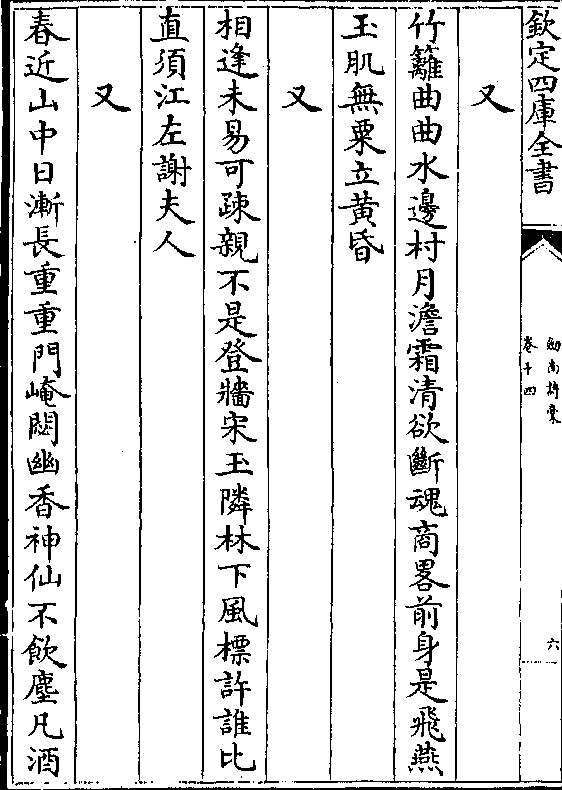 欽定四庫全書
劍南詩稾
卷十四
六
又
竹籬曲曲水邊村月澹霜清欲斷魂商畧前身是飛燕
玉肌無粟立黄昏
又
相逢未易可疎親不是登牆宋玉隣林下風標許誰比
直須江左謝夫人
又
春近山中日漸長重重門崦閟幽香神仙不飲塵凡酒